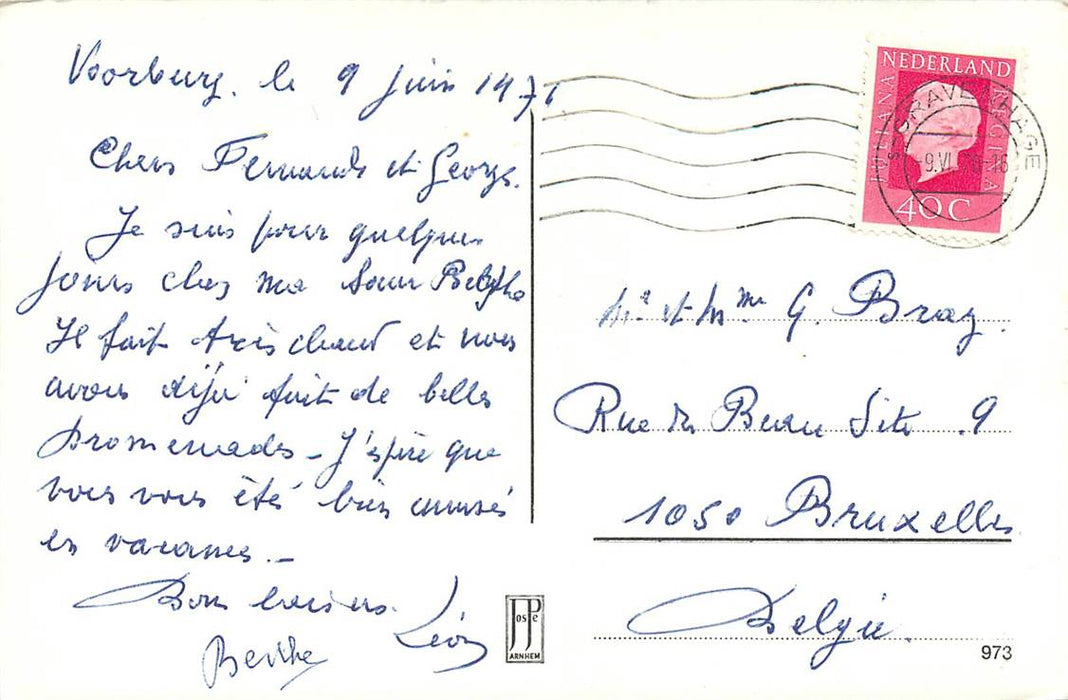 Voorburg, le 9 Juin 197
Chers Fernande et Georges.
Je suis pour quelques
jours chez ma soeur Berthe
Il fait très chaud et nous
avons déjà fait de belles
promenades - J'espère que
vous vous été bien amusés
en vacances. -
Bons baisers. Léon
Berthe
NEDERLAND
JULIANA REGINA
40 C
'S-GRAVENHAGE
-9.VI
Mr et Mme G. Bray.
Rue du Beau Site 9
1050 Bruxelles
België.
JosPe
ARNHEM
973